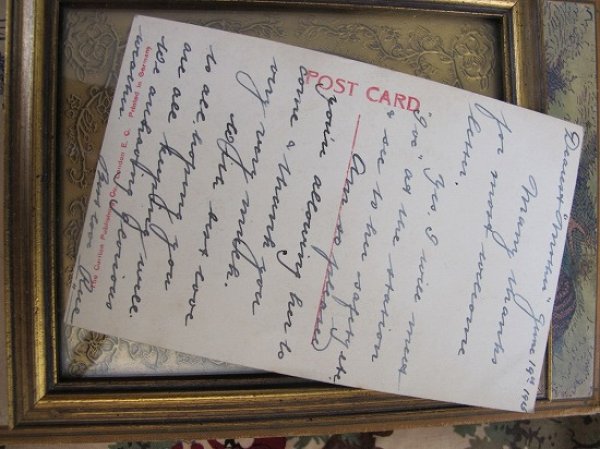 POST CARD
Dearest "Mother" June 19th
Many thanks
for most welcome
letter.
Yes, I will meet
at the station
& see to her safety etc.
Am so pleased
your allowing her to
come & thank you
very very much.
With best love
to all, hoping you
are all keeping well.
We are having glorious
weather.
love
The Publishing Co., London E. C. Printed in Germany